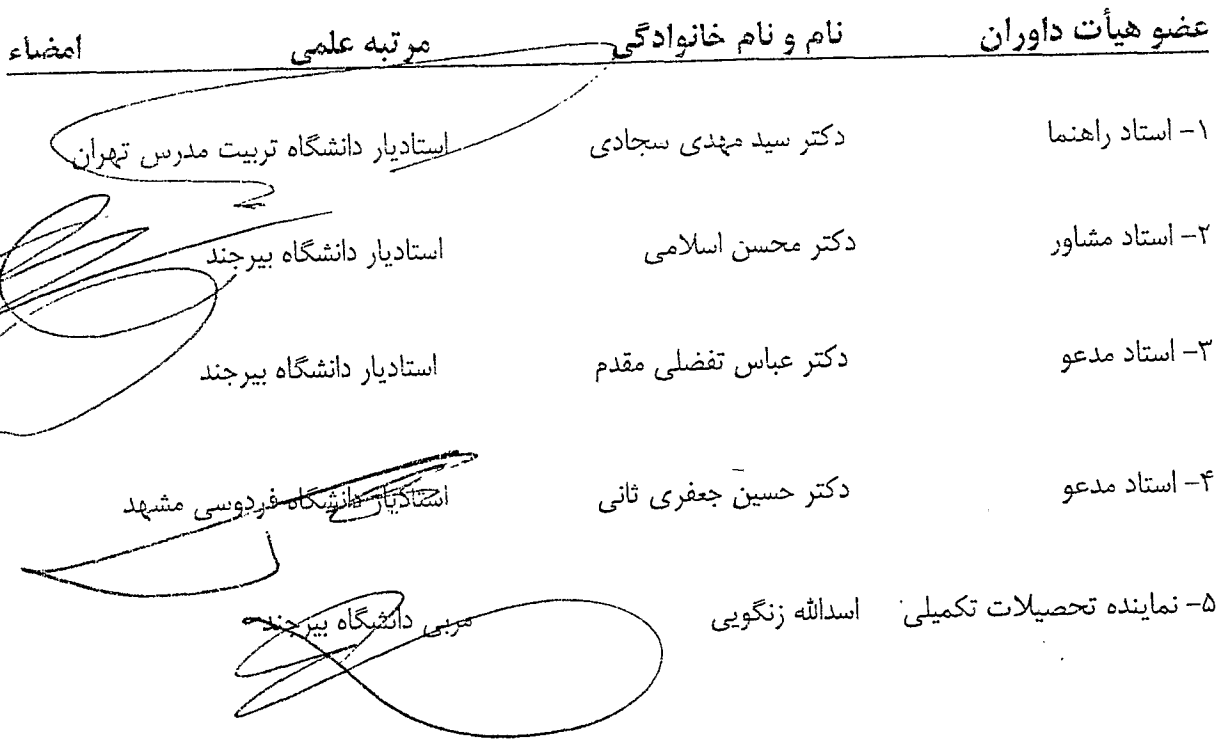 عضو هیأت داوران نام و نام خانوادگی مرتبه علمی امضاء
۱- استاد راهنما دکتر سید مهدی سجادی استادیار دانشگاه تربیت مدرس تهران
۲- استاد مشاور دکتر محسن اسلامی استادیار دانشگاه بیرجند
۳- استاد مدعو دکتر عباس تفضلی مقدم استادیار دانشگاه بیرجند
۴- استاد مدعو دکتر حسین جعفری ثانی استادیار دانشگاه فردوسی مشهد
۵- نماینده تحصیلات تکمیلی اسدالله زنگویی مربی دانشگاه بیرجند